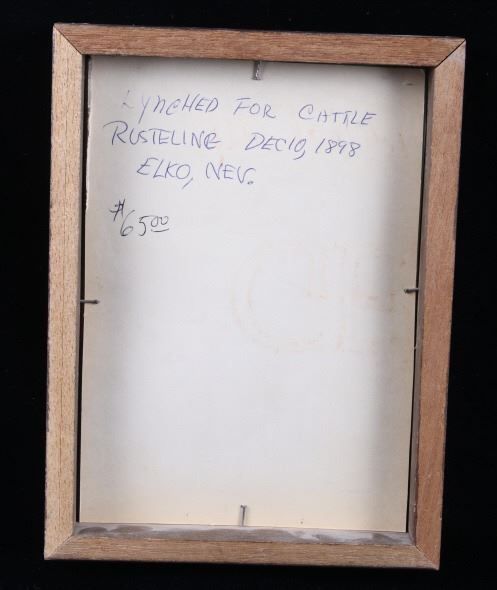 LYNCHED FOR CATTLE
RUSTELING DEC 10, 1898
ELKO, NEV.
$65.00